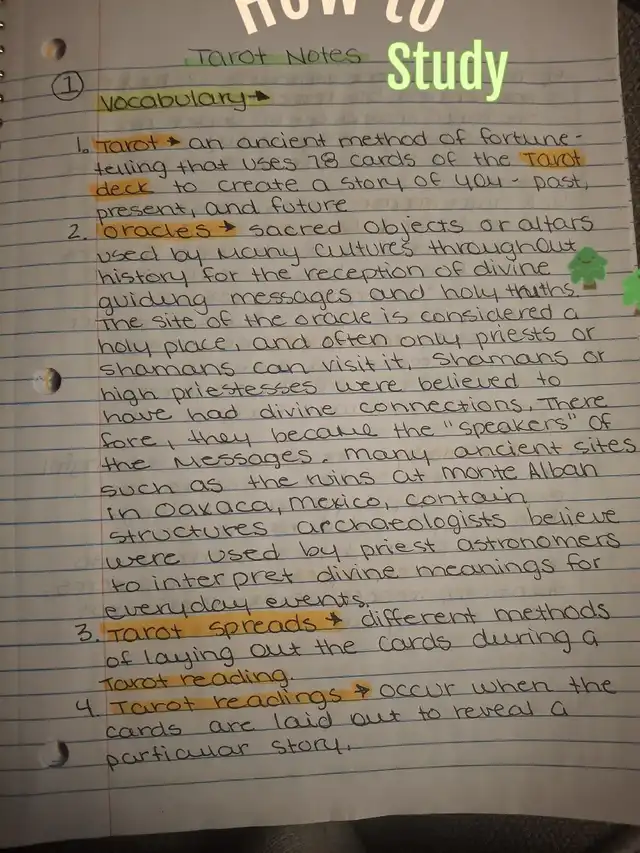 HOW to
Study
Tarot Notes
1
Vocabulary →
1. Tarot → an ancient method of fortune-
telling that uses 78 cards of the Tarot
deck to create a story of you - past,
present, and future
2. oracles → sacred objects or altars
used by many cultures throughout
history for the reception of divine
guiding messages and holy truths.
The site of the oracle is considered a
holy place, and often only priests or
shamans can visit it. Shamans or
high priestesses were believed to
have had divine connections. There
fore, they became the "speakers" of
the messages. many ancient sites
such as the ruins at monte Alban
in Oaxaca, Mexico, contain
structures archaeologists believe
were used by priest astronomers
to interpret divine meanings for
everyday events.
3. Tarot spreads → different methods
of laying out the cards during a
Tarot reading.
4. Tarot readings → occur when the
cards are laid out to reveal a
particular story.